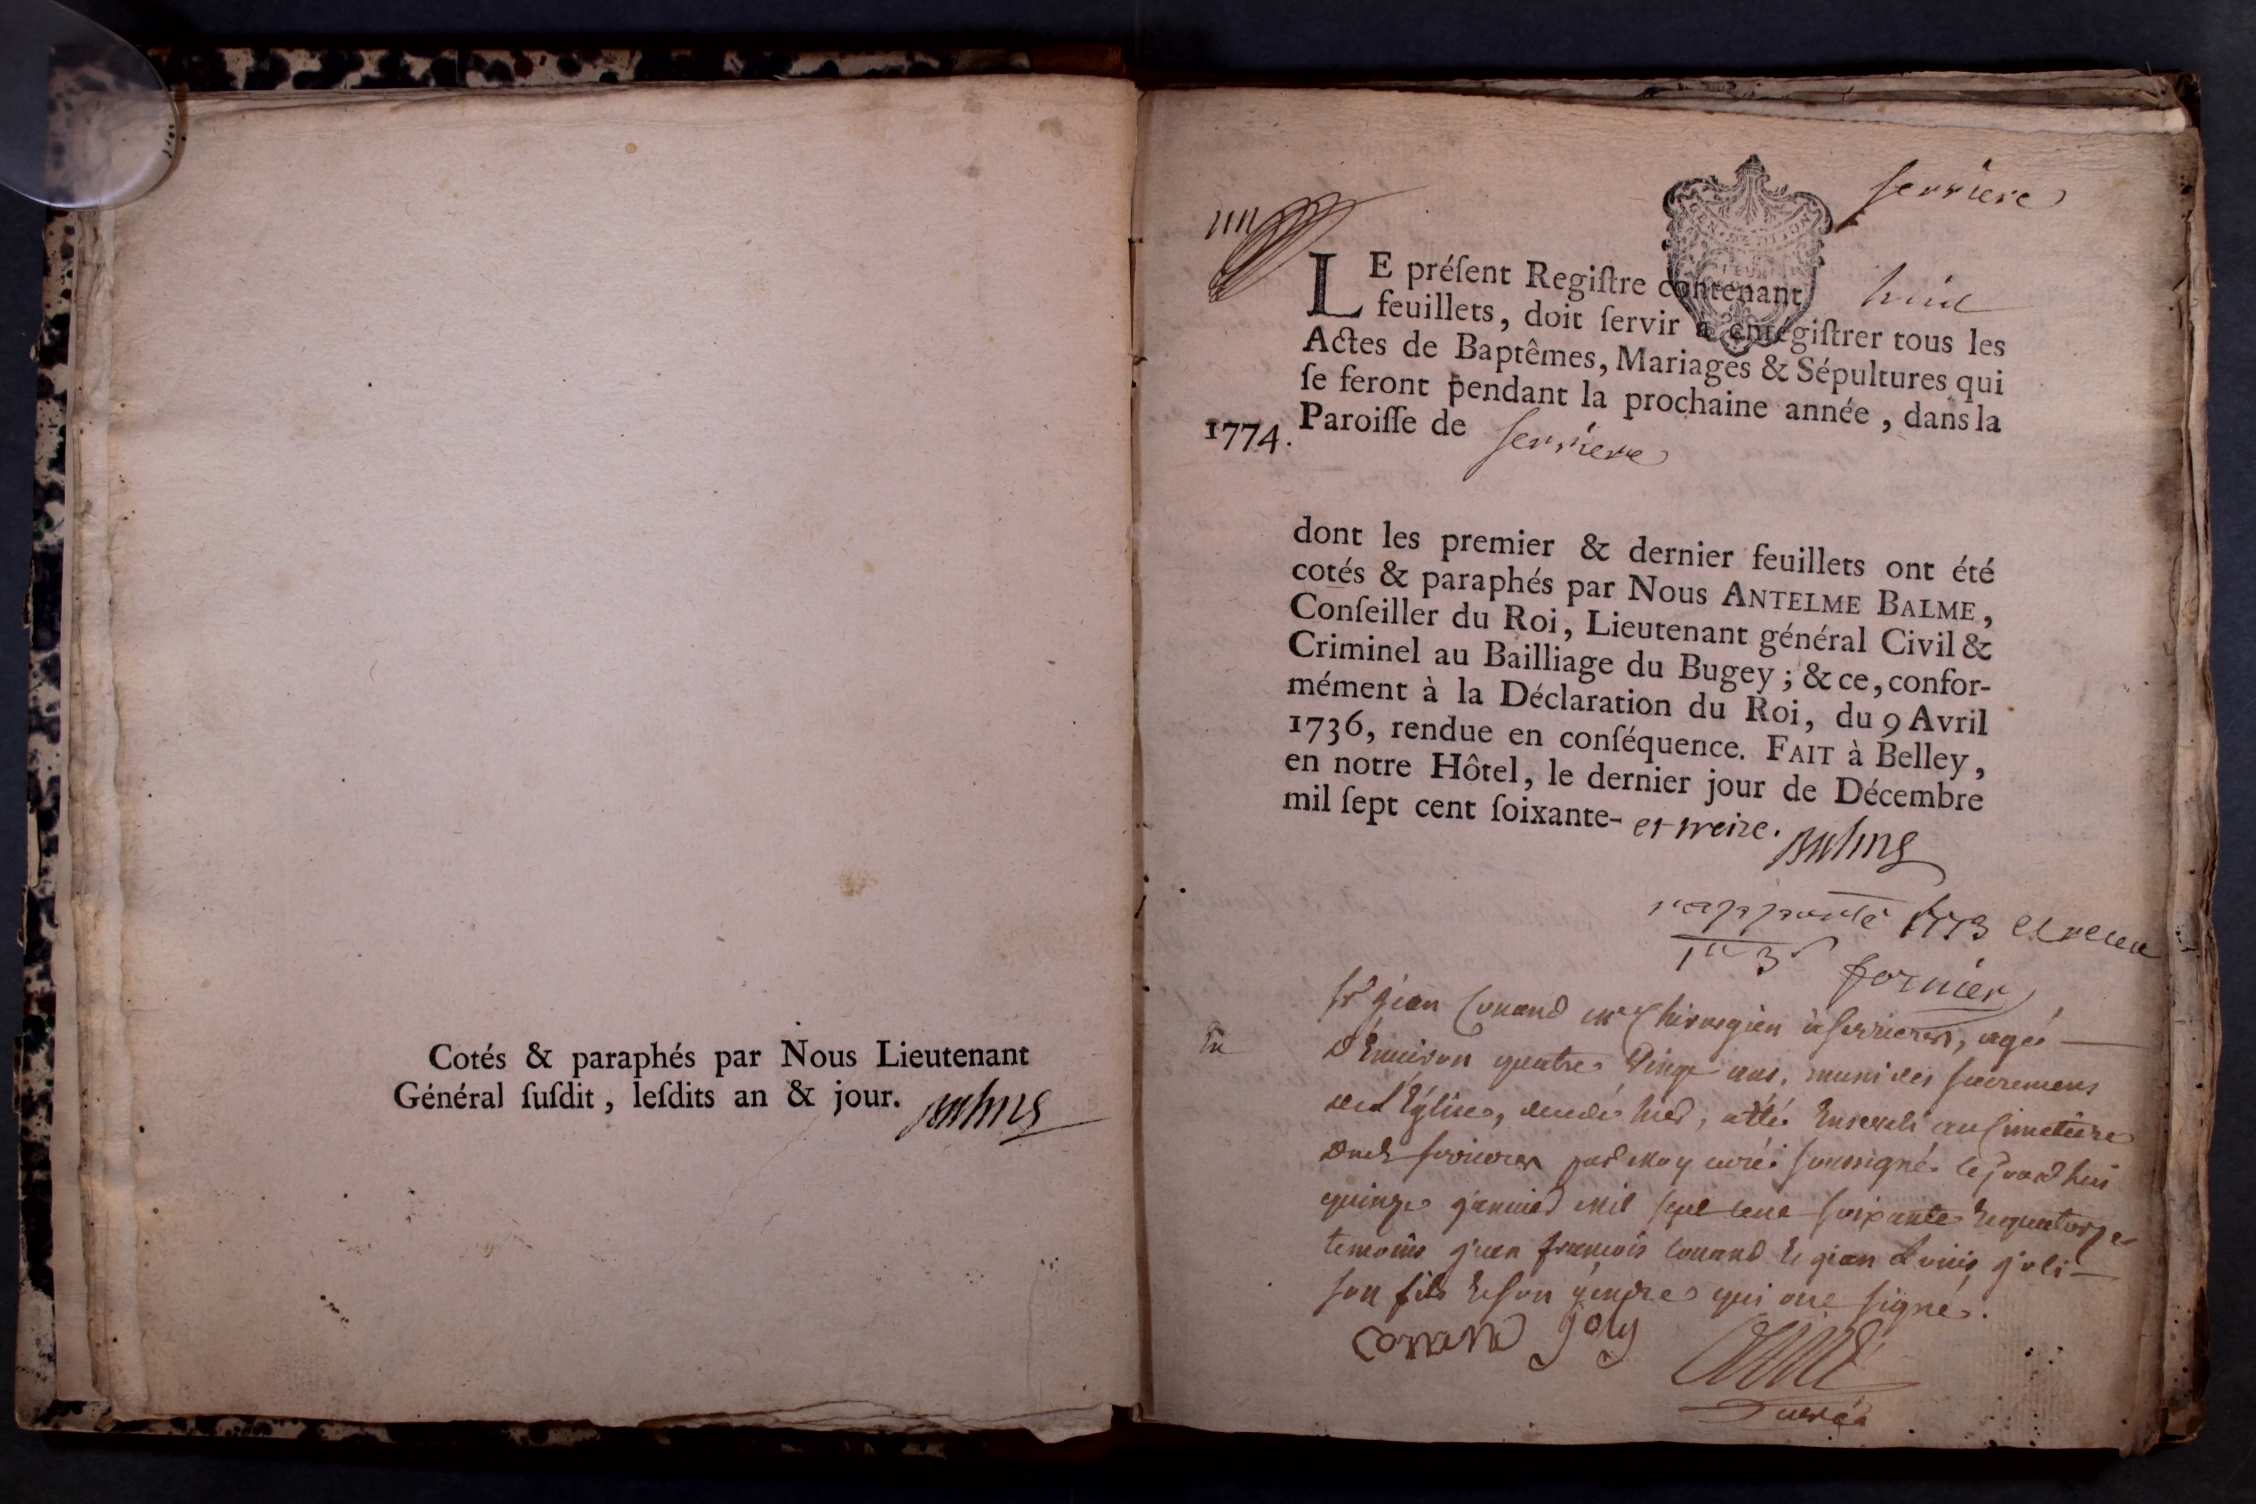 Cotés & paraphés par Nous Lieutenant
Général ſuſdit, leſdits an & jour.
ſerriere
LE préſent Regiſtre contenant huit
feuillets, doit ſervir à enrégiſtrer tous les
Actes de Baptêmes, Mariages & Sépultures qui
ſe feront pendant la prochaine année, dans la
1774. Paroiſſe de ſerriere
dont les premier & dernier feuillets ont été
cotés & paraphés par Nous ANTELME BALME,
Conſeiller du Roi, Lieutenant général Civil &
Criminel au Bailliage du Bugey; & ce, confor-
mément à la Déclaration du Roi, du 9 Avril
1736, rendue en conſéquence. FAIT à Belley,
en notre Hôtel, le dernier jour de Décembre
mil ſept cent ſoixante- et treize. Balme
rapporté 1773 et
fornier
ſr jean Conand me Chirurgien à ſerrieres, agé
d'Environ quatre Vingt ans, muni des ſacremens
de l'Église, décédé hier, a été Enseveli au Cimetiere
dud ſerrieres par moy curé ſoussigné ce jourdhui
quinze janvier mil ſept cent ſoixante et quatorze
temoins jean françois Conand et jean Louis joli
ſon fils et ſon gendre qui ont ſigné.
conand joly
curé